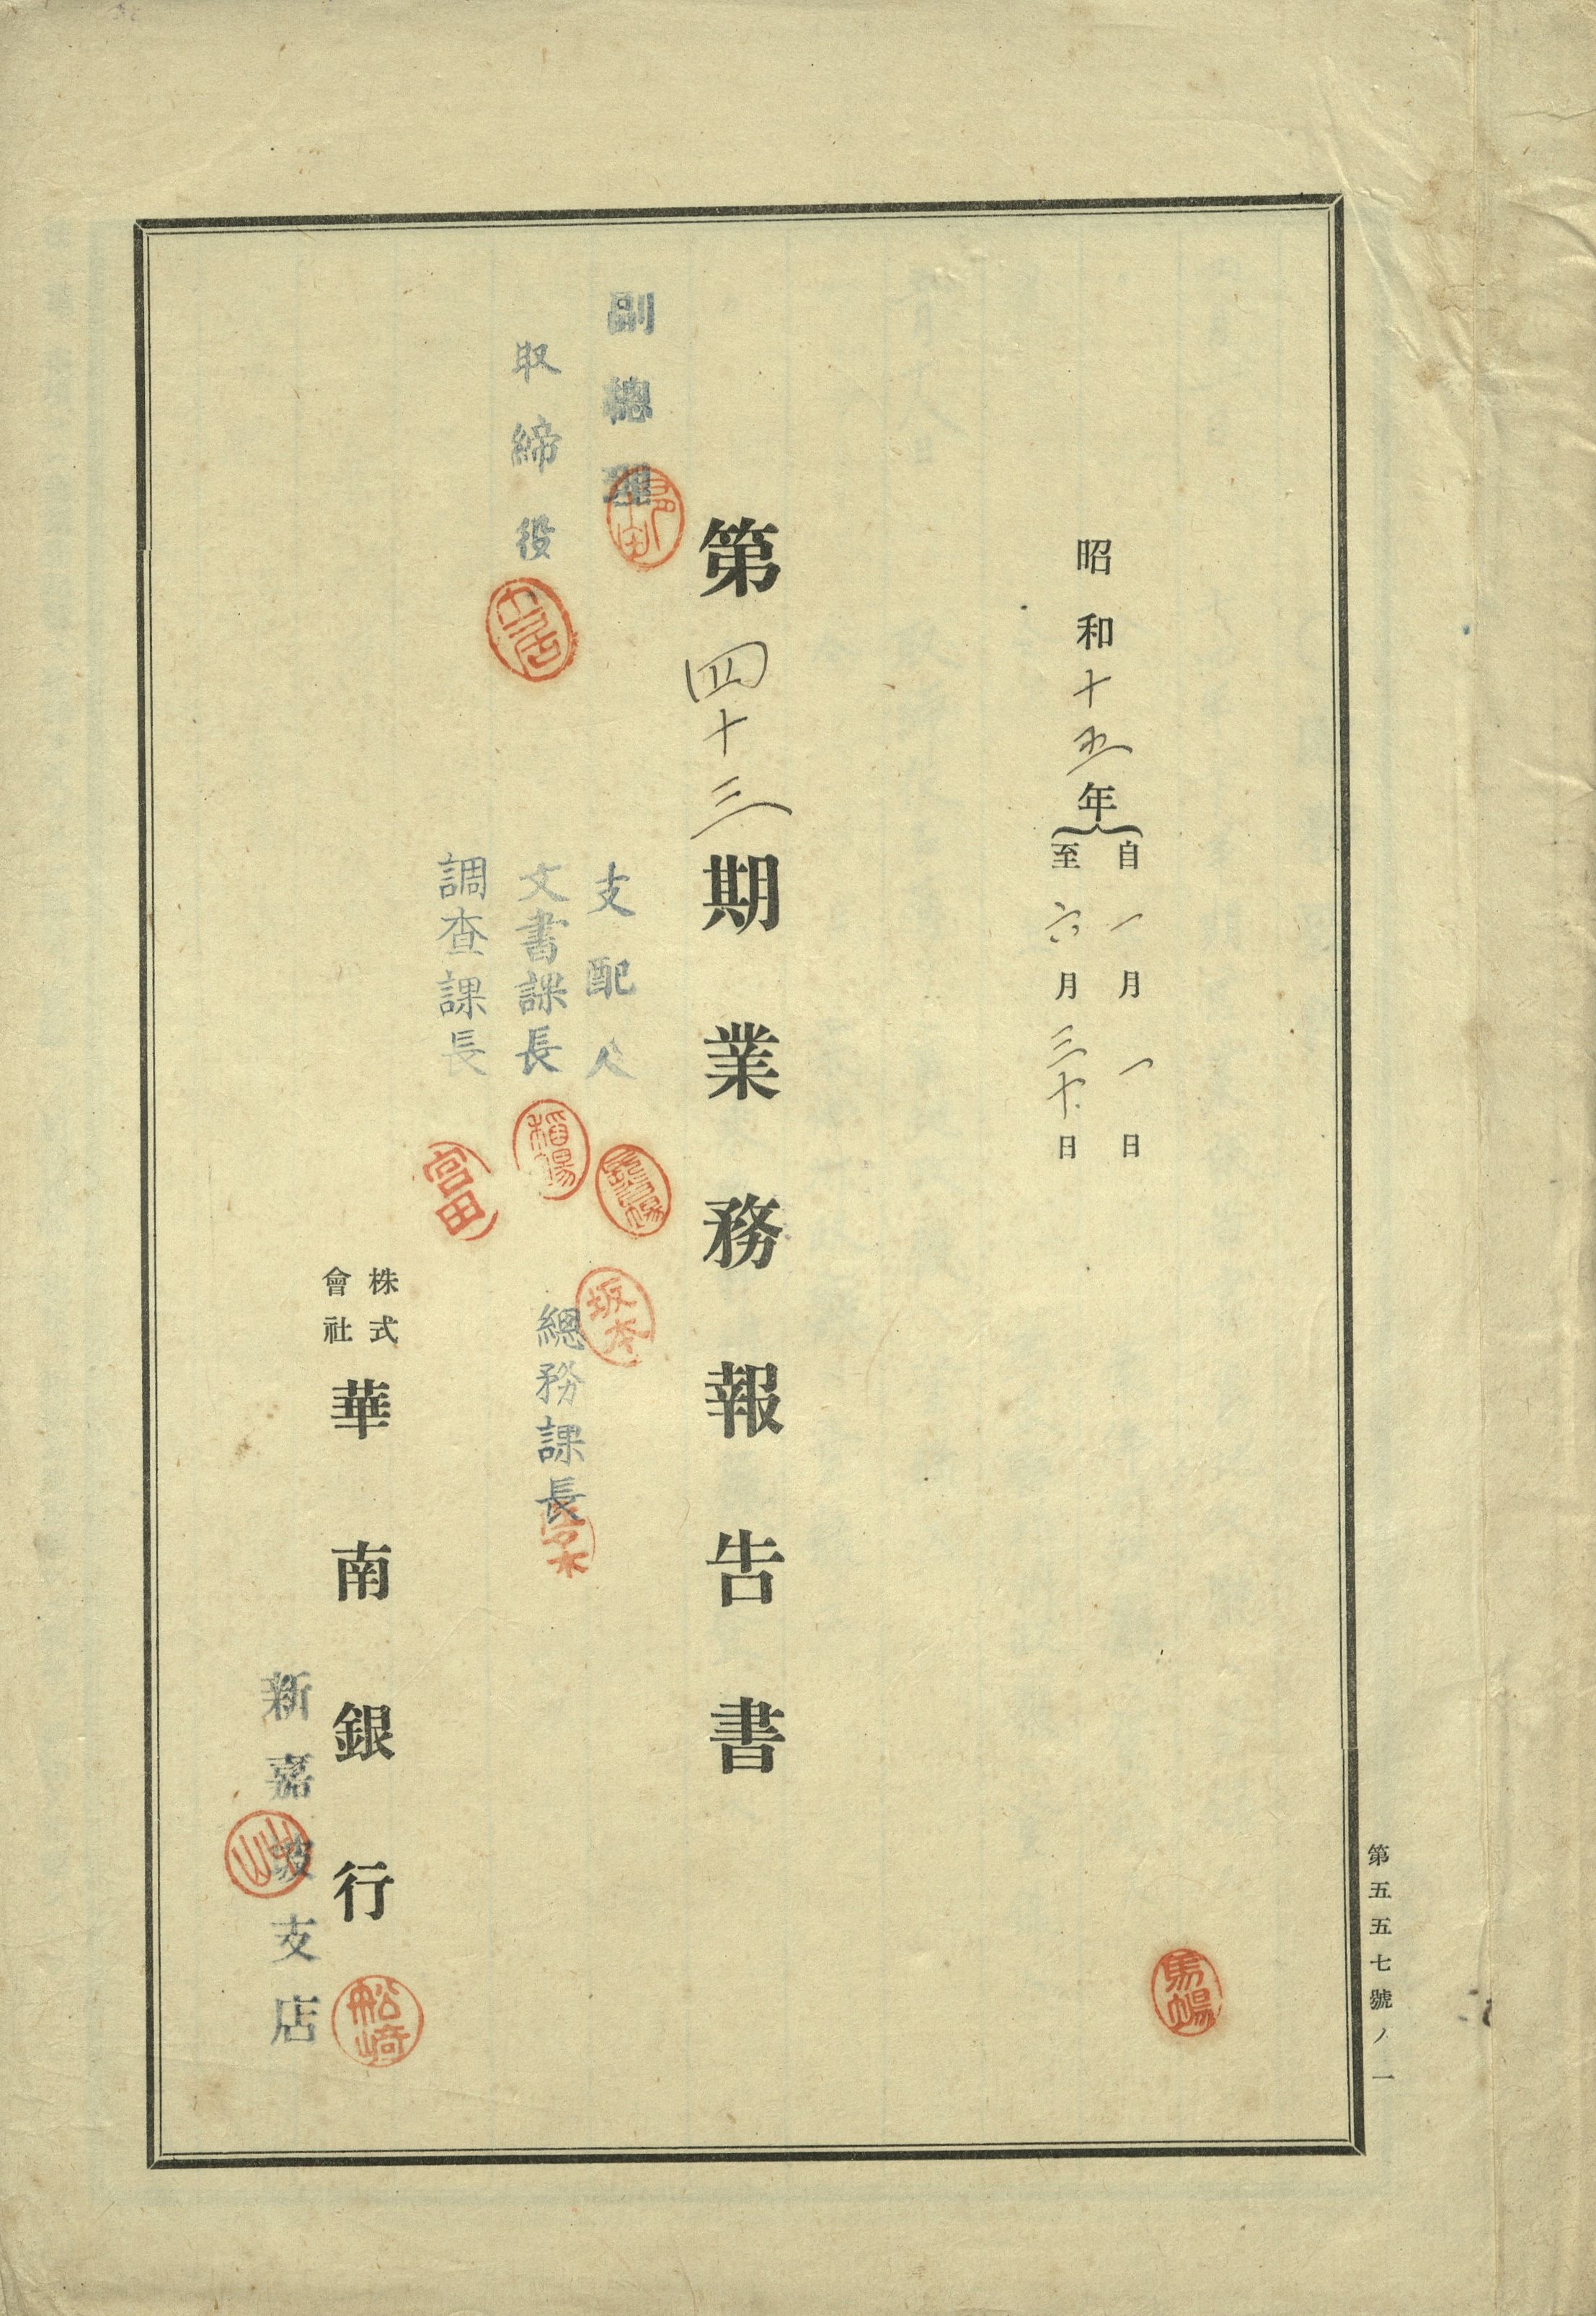 第五五七號ノ一
昭和十五年
自一月一日
至六月三十日
馬場
第四十三期業務報告書
副總理
取締役
支配人
文書課長
稲場
調查課長
富田
坂本
總務課長
株式
會社
華南銀行
船崎
新嘉坡支店